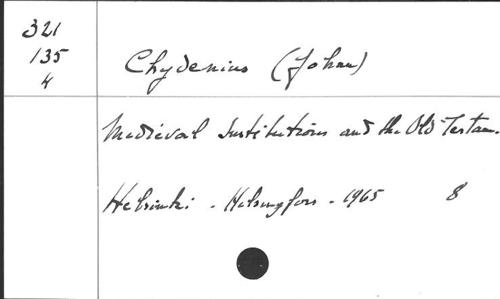 321
135
4
Chydenius (Johan)
Medieval Institutions and the Old Testam.
Helsinki - Helsingfors - 1965 8